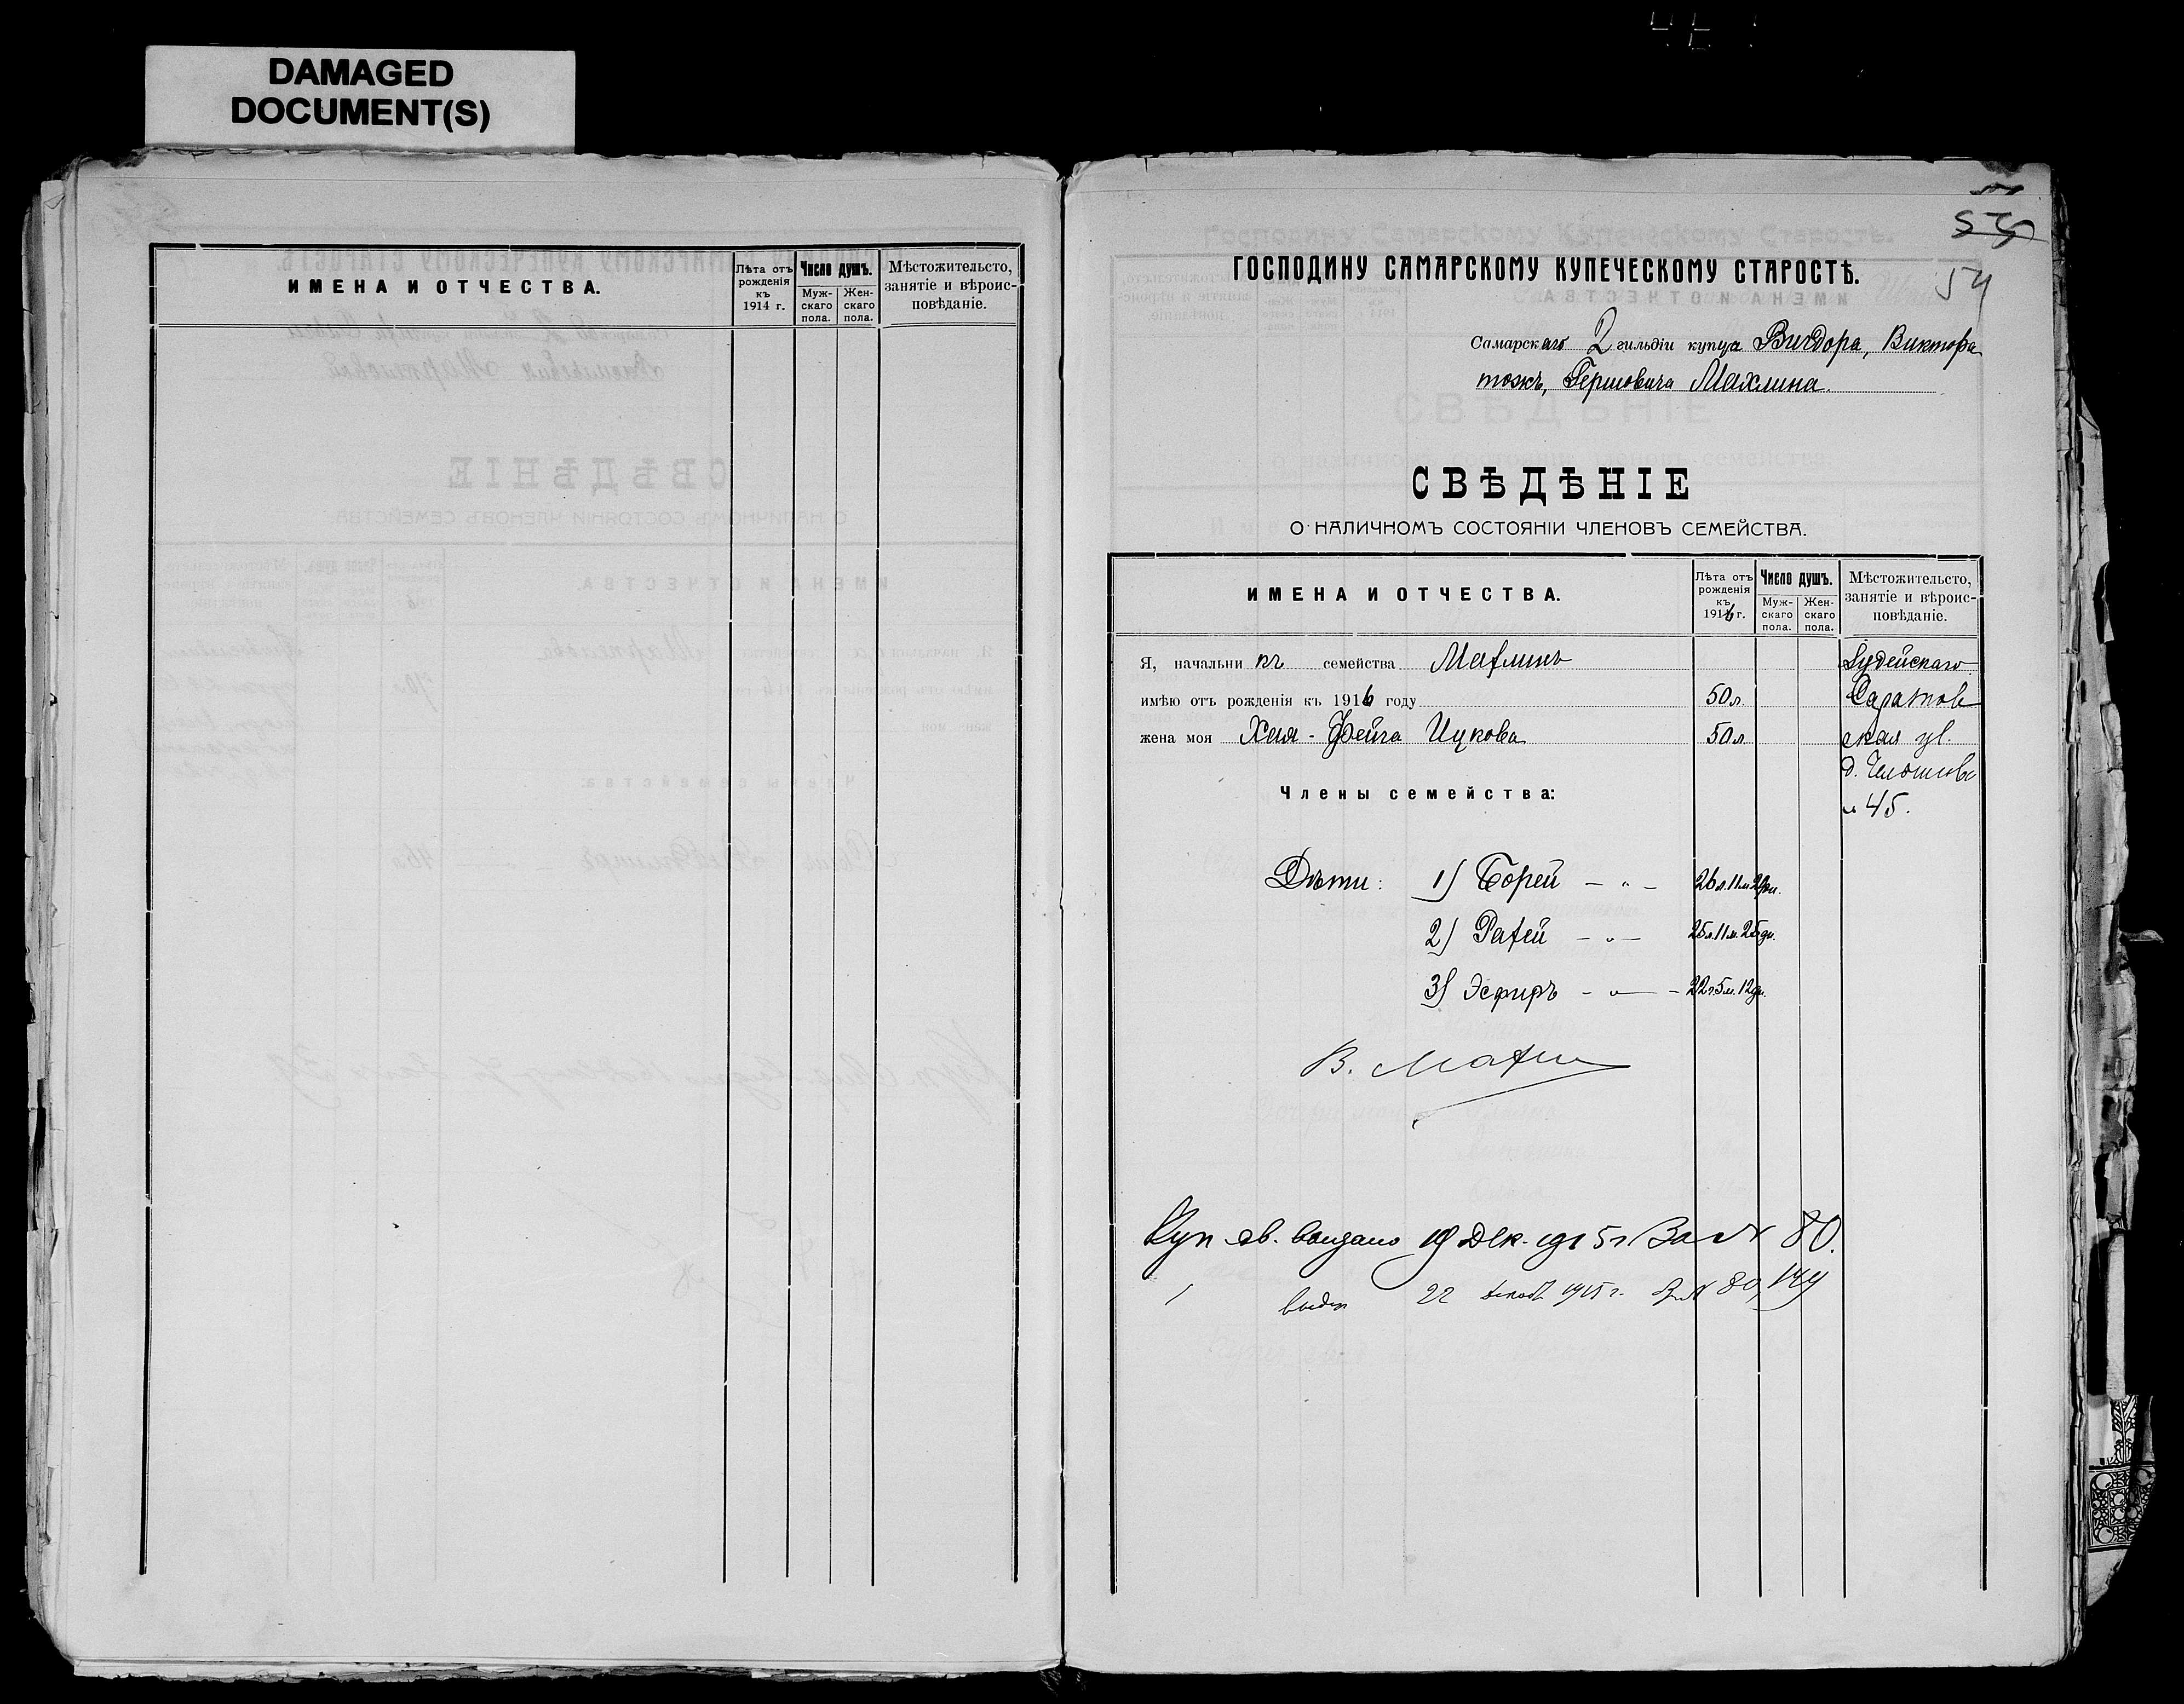 DAMAGED
DOCUMENT(S)
ИМЕНА И ОТЧЕСТВА.
Лѣта отъ рожденія къ 1914 г.
Число душъ.
Мужскаго пола.
Женскаго пола.
Мѣстожительсто, занятіе и вѣроисповѣданіе.
54
ГОСПОДИНУ САМАРСКОМУ КУПЕЧЕСКОМУ СТАРОСТѢ.
Самарскаго 2 гильдіи купца Вигдора, Виктора
тожъ, Гершовича Махлина.
СВѢДѢНІЕ
О НАЛИЧНОМЪ СОСТОЯНІИ ЧЛЕНОВЪ СЕМЕЙСТВА.
ИМЕНА И ОТЧЕСТВА.
Лѣта отъ рожденія къ 1916 г.
Число душъ.
Мужскаго пола.
Женскаго пола.
Мѣстожительсто, занятіе и вѣроисповѣданіе.
Я, начальникъ семейства Махлинъ Іудейскаго
имѣю отъ рожденія къ 1916 году 50 л. Саратов
жена моя Хая-Фейга Ицкова 50 л. ская ул.
д.
Члены семейства: № 45.
Дѣти: 1) Борей — „ — 26 л. 11 м. 29 дн.
2) Рахей — „ — 25 л. 11 м. 25 дн.
3) Эсфирь — „ — 22 г. 5 м. 12 дн.
В. Махлин
Куп. св. выдано 19 Дек. 1915 г За № 80.
22 декаб 1915 г. За № 80, 149